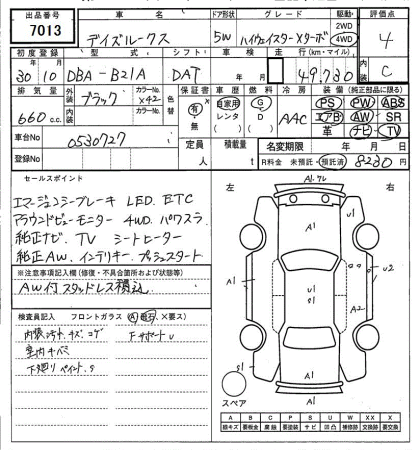 出品番号 車名 ドア形状 グレード 駆動 評価点
7013 デイズルークス 5W ハイウェイスターXターボ 2WD 4WD 4
初度登録 型式 シフト 車検 走行(km・マイル) 内装
30年10月 DBA-B21A DAT 年 月 49,730 C
排気量 外装色 カラーNo. 色替 保証書 車歴 燃料 冷房 装備(純正部品に限る)
660c.c. ブラック X42 有・無 自家用 レンタ G D AAC PS PW ABS
エアB AW SR
革 ナビ TV
車台No 0530727 定員 人 積載量 t 名変期限 年 月 日
登録No R料金 未預託・預託済 8230円
セールスポイント 左 右
エマージンシーブレーキ LED. ETC
アラウンドビューモニター 4WD パワスラ
純正ナビ. TV シートヒーター
純正AW. インテリキー. プッシュスタート
※注意事項記入欄(修復・不具合箇所および状態等)
AW付スタッドレス積込
検査員記入 フロントガラス(A) 飛石、X要ス)
内装汚れ キズ コゲ FサポートU
室内キバミ
下廻りペイント. S
A1.7L
A1 U1
A1 U1 U2
S1 A2
A1
A1
スペア
A B C P S U W X XX X
線キズ 要板金 腐蝕 要塗装 サビ 凹凸 補修跡 要交換 交換跡 要交換